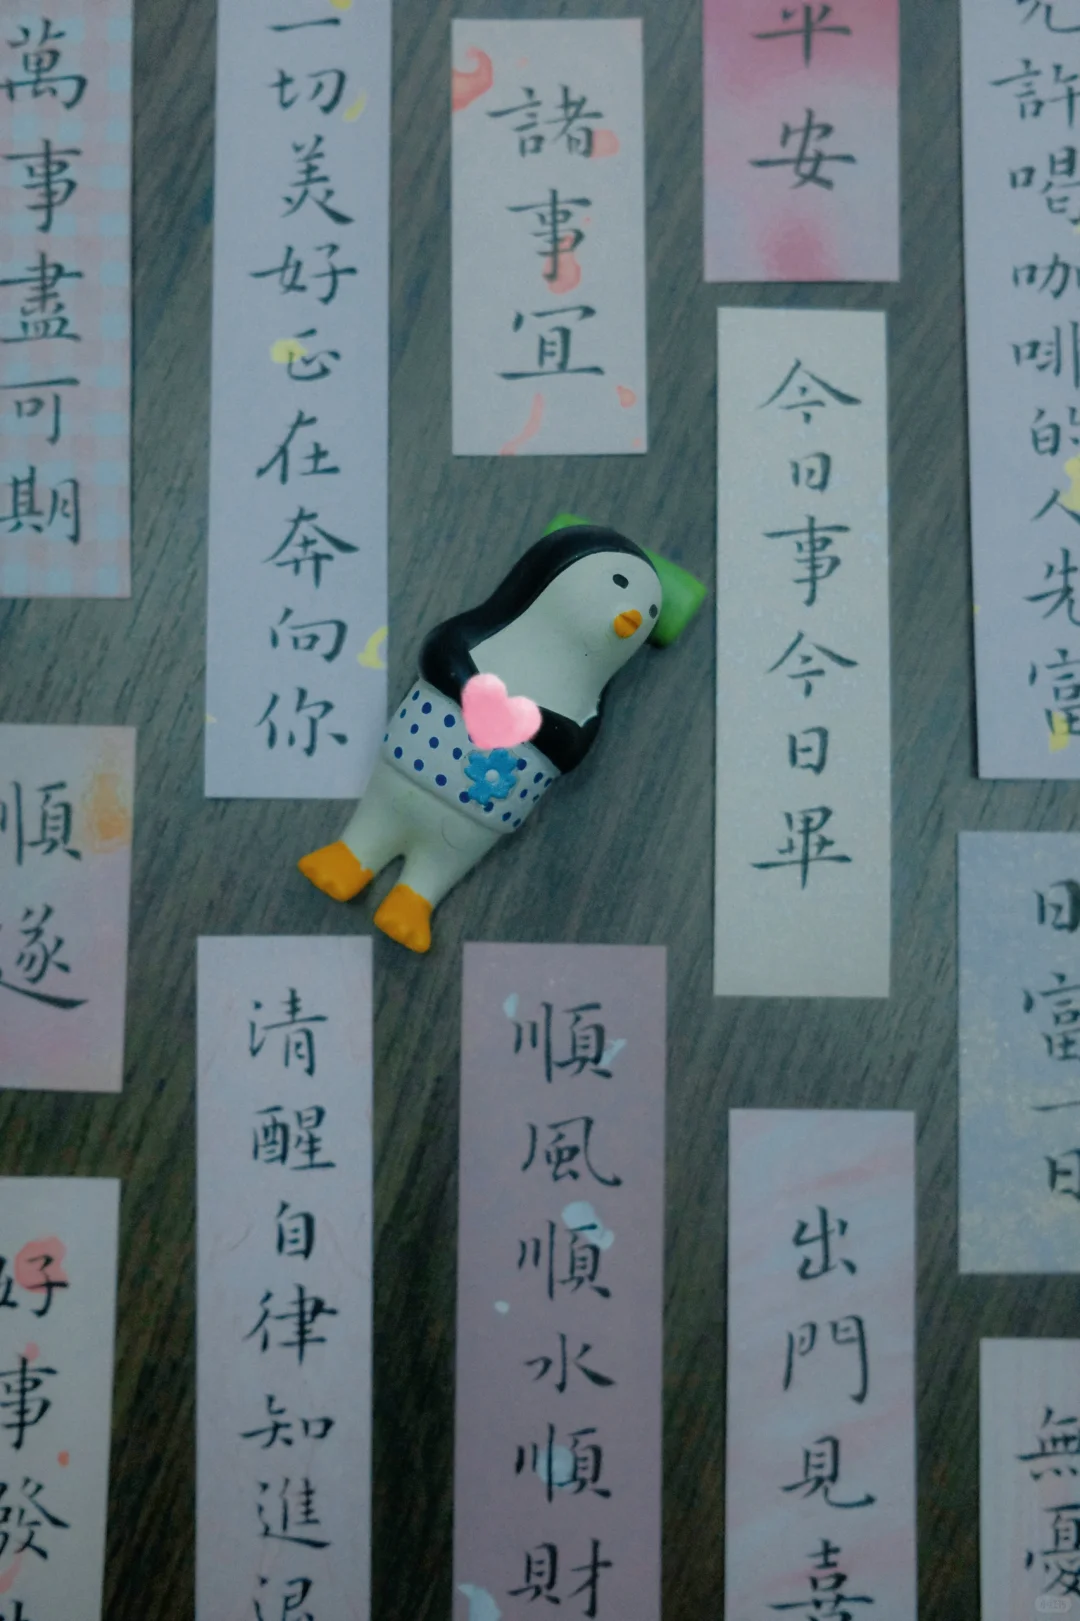 萬事盡可期
一切美好正在奔向你
諸事宜
平安
允許喝咖啡的人先富
今日事今日畢
順遂
日富一日
好事發
清醒自律知進退
順風順水順財
出門見喜
無憂